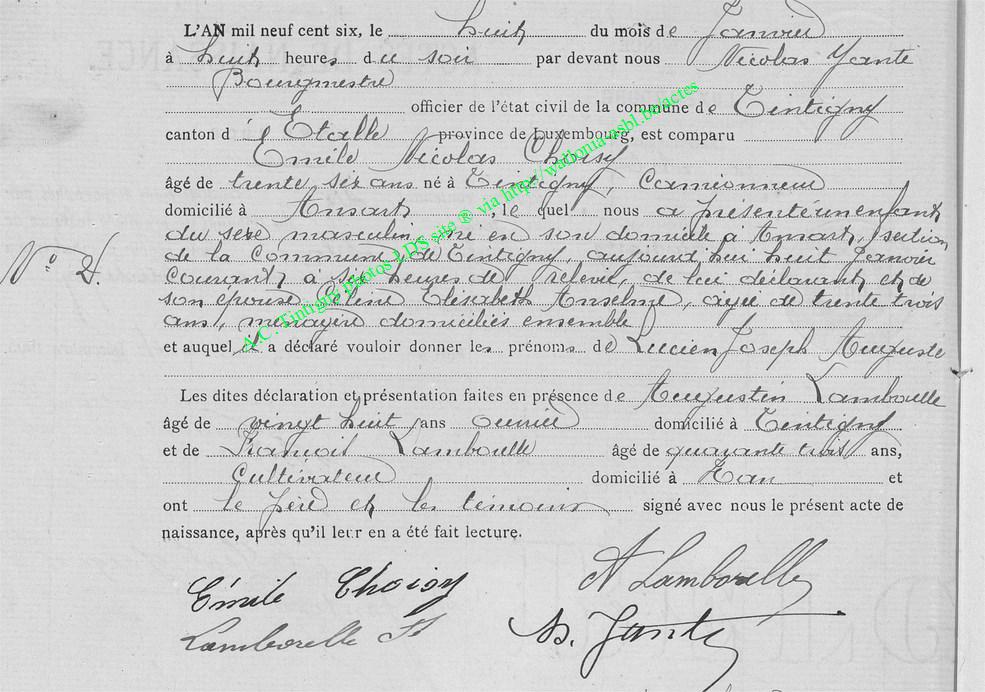 L'AN mil neuf cent six, le huit du mois de Janvier
à huit heures du soir par devant nous Nicolas Yante
Bourgmestre
officier de l'état civil de la commune de Tintigny
canton d'Etalle province de Luxembourg, est comparu
Emile Nicolas Choisy
âgé de trente six ans né à Tintigny, Camionneur
domicilié à Ansart, le quel nous a présenté un enfant
du sexe masculin, né en son domicile à Ansart, section
N° 2. de la Commune de Tintigny, aujourd'hui huit Janvier
Courant à six heures de relevée, de lui déclarant et de
son épouse Elisabeth Anselme, agée de trente trois
ans, ménagère domiciliés ensemble
et auquel il a déclaré vouloir donner les prénoms de Lucien Joseph Auguste
Les dites déclaration et présentation faites en présence de Augustin Lamborelle
âgé de vingt huit ans ouvrier domicilié à Tintigny
et de François Lamborelle âgé de quarante trois ans,
Cultivateur domicilié à Han et
ont le père et les témoins signé avec nous le présent acte de
naissance, après qu'il leur en a été fait lecture.
Emile Choisy A Lamborelle
Lamborelle N. Yante
A.C. Tintigny photos LDS site ® via http://wallonia-asbl.be/actes